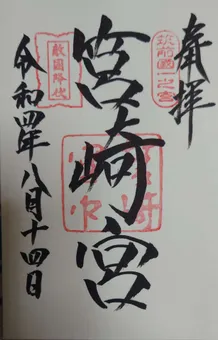 奉拝
筑前國一之宮
筥崎宮
敵國降伏
令和四年八月十四日